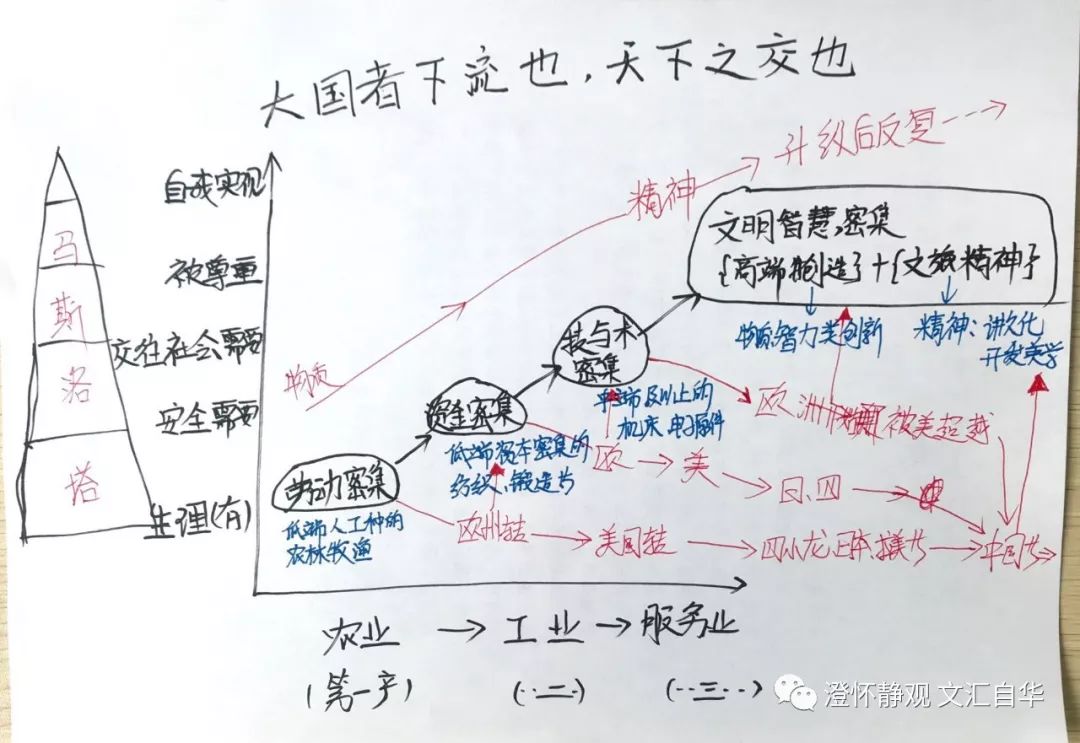 大国者下流也，天下之交也
自我实现
被尊重
交往社会需要
安全需要
生理(有)
马
斯
洛
塔
物质
精神
升级后反复
文明智慧密集
{高端创造}+{文娱精神}
物质:智力类创新
精神:讲文化
开发美学
技与术
密集
中端及以上的
机床、电子原件
资金密集
低端资本密集的
纺织、锻造等
劳动密集
低端人工种的
农林牧渔
欧洲
被美超越
欧
美
日、四
欧州转
美国转
四小龙、日本
中国等
农业
工业
服务业
(第一产)
(··二··)
(··三··)
澄怀静观 文汇自华